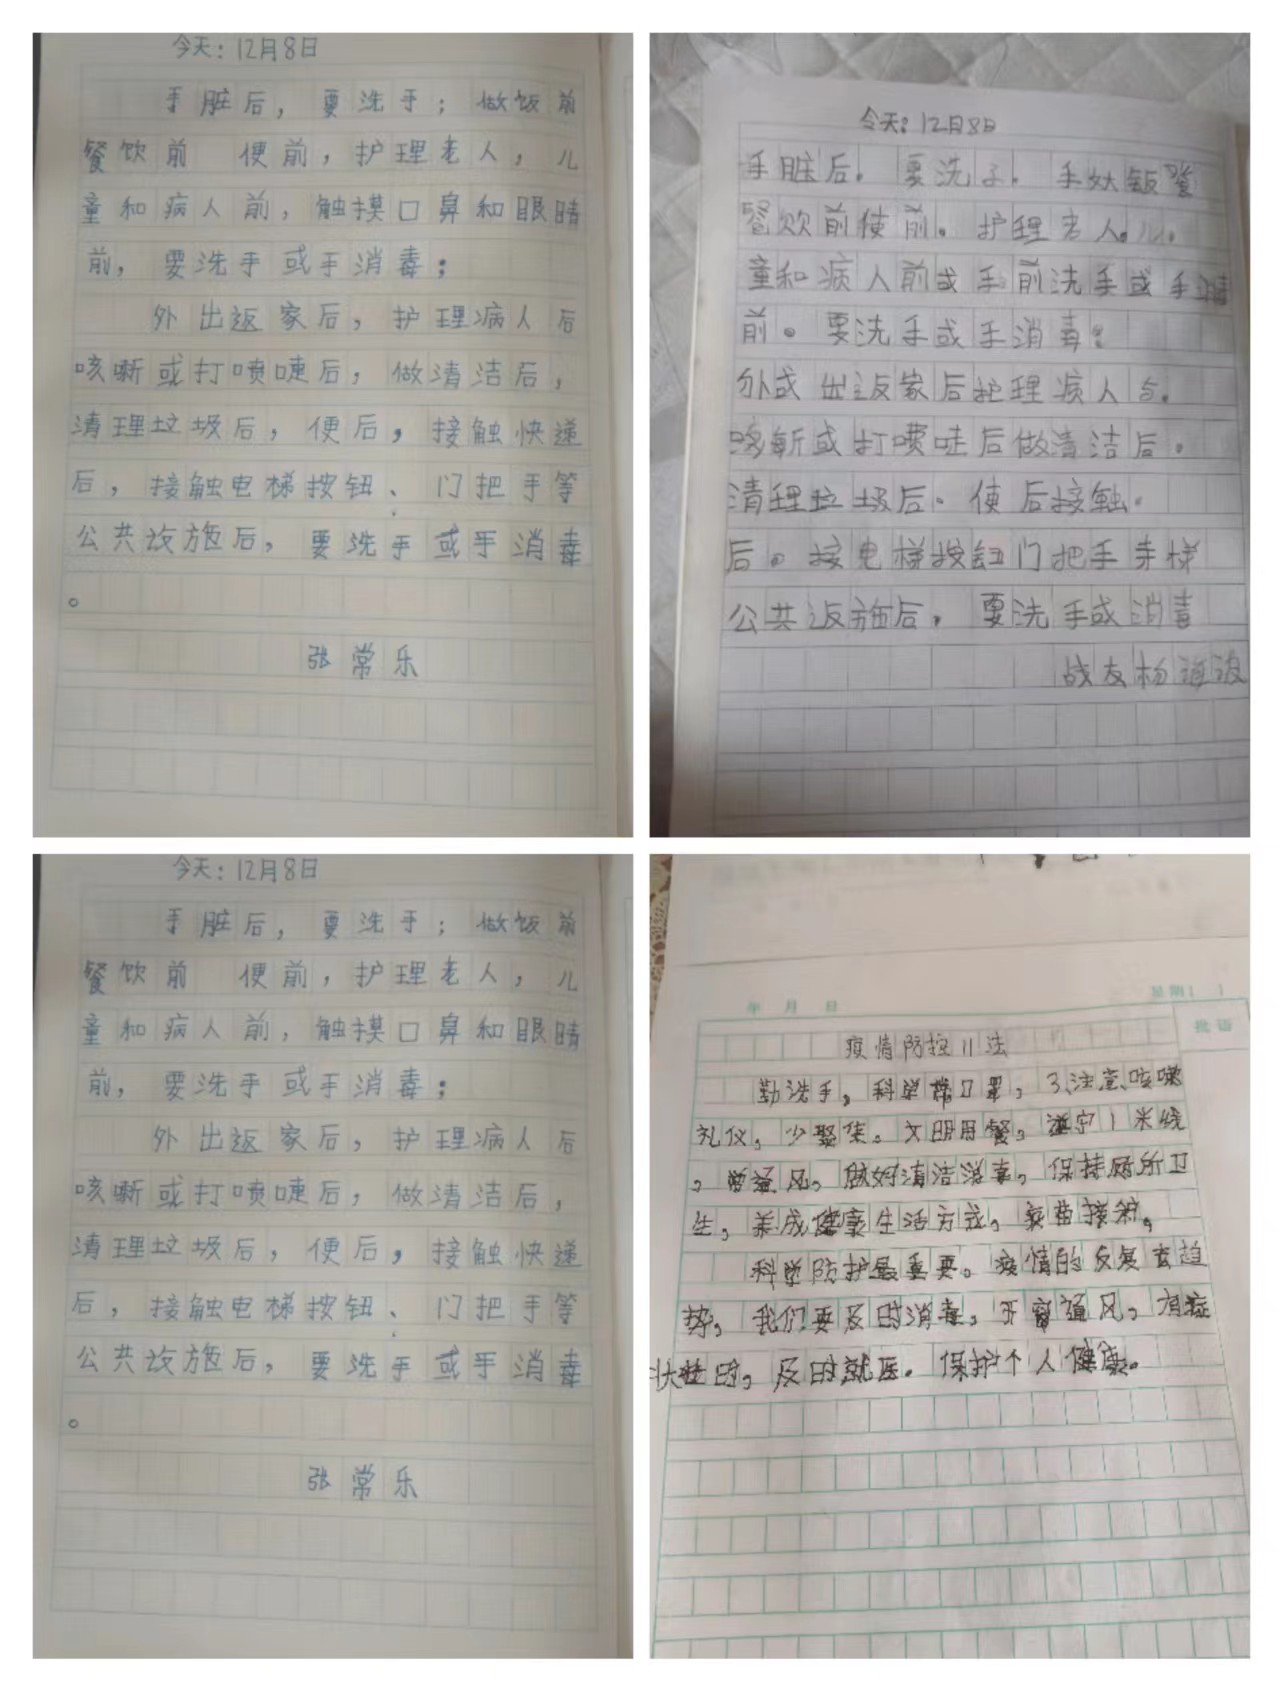 今天：12月8日
手脏后，要洗手；做饭前
餐饮前 便前，护理老人，儿
童和病人前，触摸口鼻和眼睛
前，要洗手或手消毒；
外出返家后，护理病人后
咳嘶或打喷啑后，做清洁后，
清理垃圾后，便后，接触快递
后，接触电梯按钮、门把手等
公共设施后，要洗手或手消毒
。
张常乐
今天：12月8日
手脏后。要洗子．手
餐饮前使前。护理老人。儿．
童和病人前或手前洗手或手
前。要洗手或手消毒：
外或出返家后护理病人
或打喷哇后做清洁后．
清理垃圾后．使后接触．
后。按电梯按钮门把手
公共返施后，要洗手或消毒
战友杨海波
今天：12月8日
手脏后，要洗手；做饭前
餐饮前 便前，护理老人，儿
童和病人前，触摸口鼻和眼睛
前，要洗手或手消毒；
外出返家后，护理病人后
咳嘶或打喷啑后，做清洁后，
清理垃圾后，便后，接触快递
后，接触电梯按钮、门把手等
公共设施后，要洗手或手消毒
。
张常乐
年 月 日 星期（ ）
批语
疫情防控11法
勤洗手，科学带口罩，3注意、咳嗽
礼仪，少聚集。文明用餐，遵守1米线
，常通风，做好清洁消毒，保持厕所卫
生，养成健康生活方式，疫苗接种。
科学防护最重要。疫情的反复
势，我们要及时消毒，开窗通风，有症
状时，及时就医。保护个人健康。